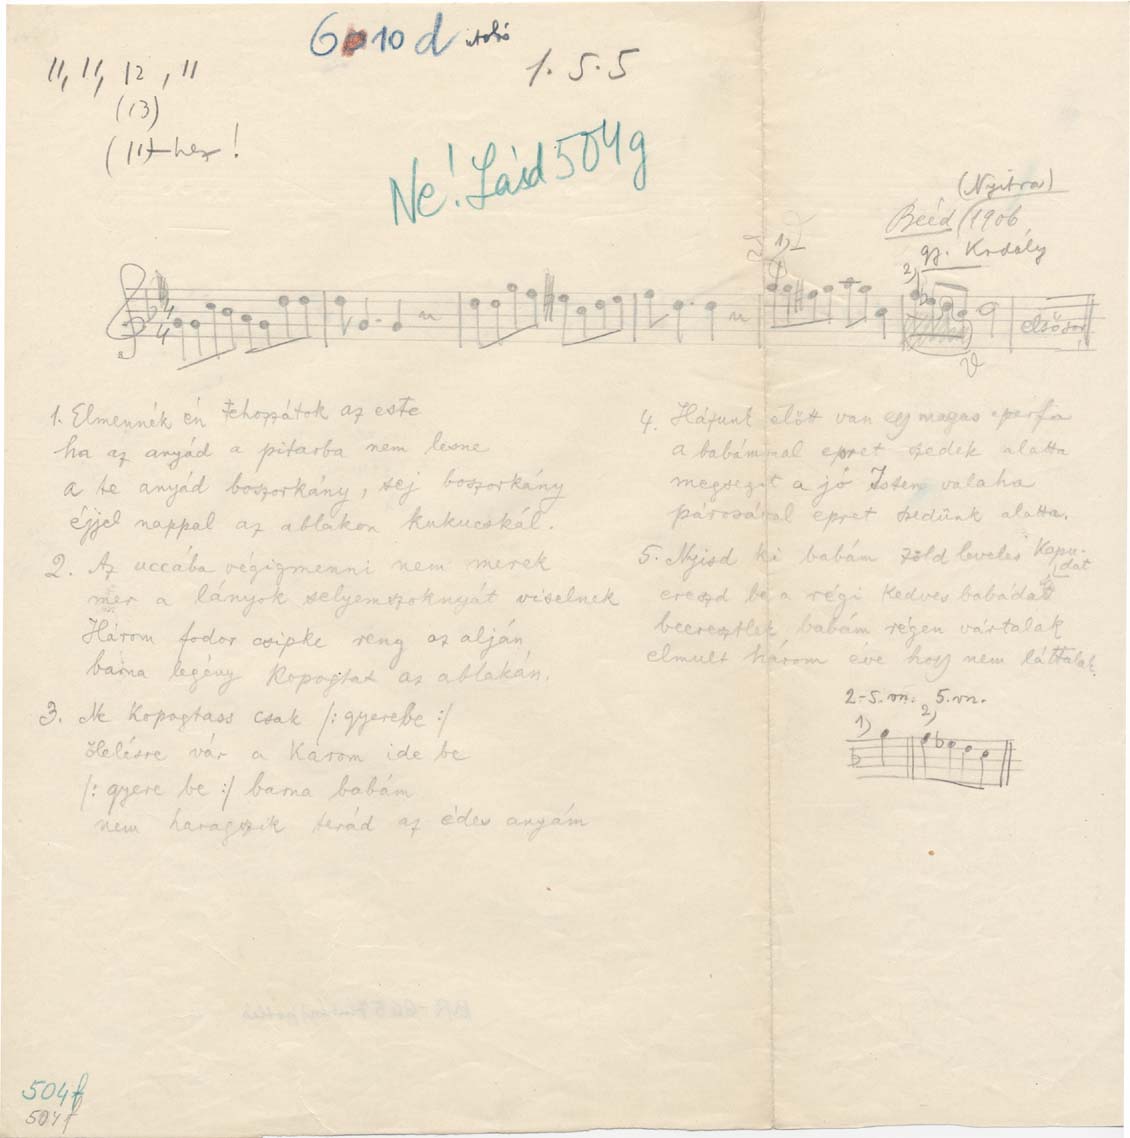 6 10 d utolsó
11, 11, 12, 11
(13)
(11)-hez!
1. 5. 5
Ne! Lásd 504g
(Nyitra)
Bééd (1906
gy. Kodály
1)
2)
4
4
első sor
V
1. Elmennék én tehozzátok az este
ha az anyád a pitarba nem lesne
a te anyád boszorkány, sej boszorkány
éjjel nappal az ablakon kukucskál.
2. Az uccába végigmenni nem merek
mer a lányok selyemszoknyát viselnek
Három fodor csipke reng az alján
barna legény kopogtat az ablakán.
3. Ne kopogtass csak /: gyerebe :/
Helésre vár a karom ide be
/: gyere be :/ barna babám
nem haragszik terád az édes anyám
4. Házunk előtt van egy magas eperfa
a babámmal epret szedek alatta
megsegít a jó Isten valaha
párosával epret szedünk alatta.
5. Nyisd ki babám zöld leveles kapudat
ereszd be a régi kedves babádat
beeresztlek babám régen vártalak
elmult három éve hogy nem láttalak.
2-5. vn. 5. vn.
1) 2)
504f
504f